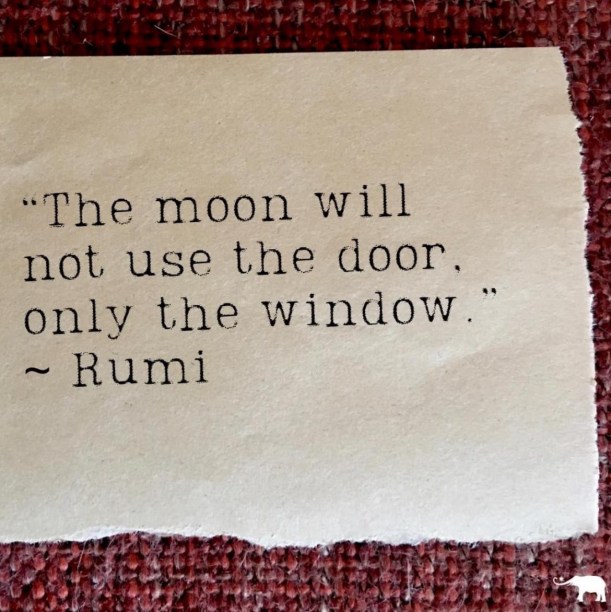 “The moon will
not use the door,
only the window.”
~ Rumi